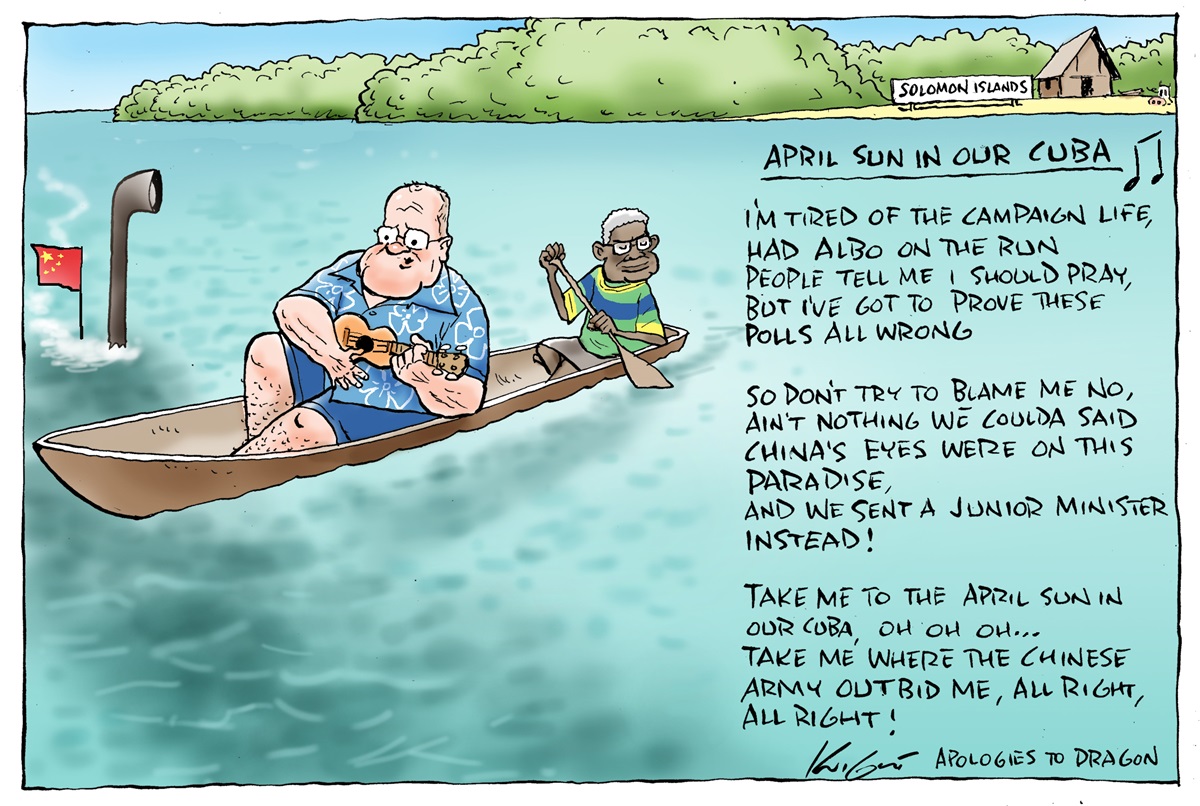 SOLOMON ISLANDS
APRIL SUN IN OUR CUBA
I'M TIRED OF THE CAMPAIGN LIFE,
HAD ALBO ON THE RUN
PEOPLE TELL ME I SHOULD PRAY,
BUT I'VE GOT TO PROVE THESE
POLLS ALL WRONG
SO DON'T TRY TO BLAME ME NO,
AIN'T NOTHING WE COULDA SAID
CHINA'S EYES WERE ON THIS
PARADISE,
AND WE SENT A JUNIOR MINISTER
INSTEAD!
TAKE ME TO THE APRIL SUN IN
OUR CUBA, OH OH OH...
TAKE ME WHERE THE CHINESE
ARMY OUTBID ME, ALL RIGHT,
ALL RIGHT!
APOLOGIES TO DRAGON